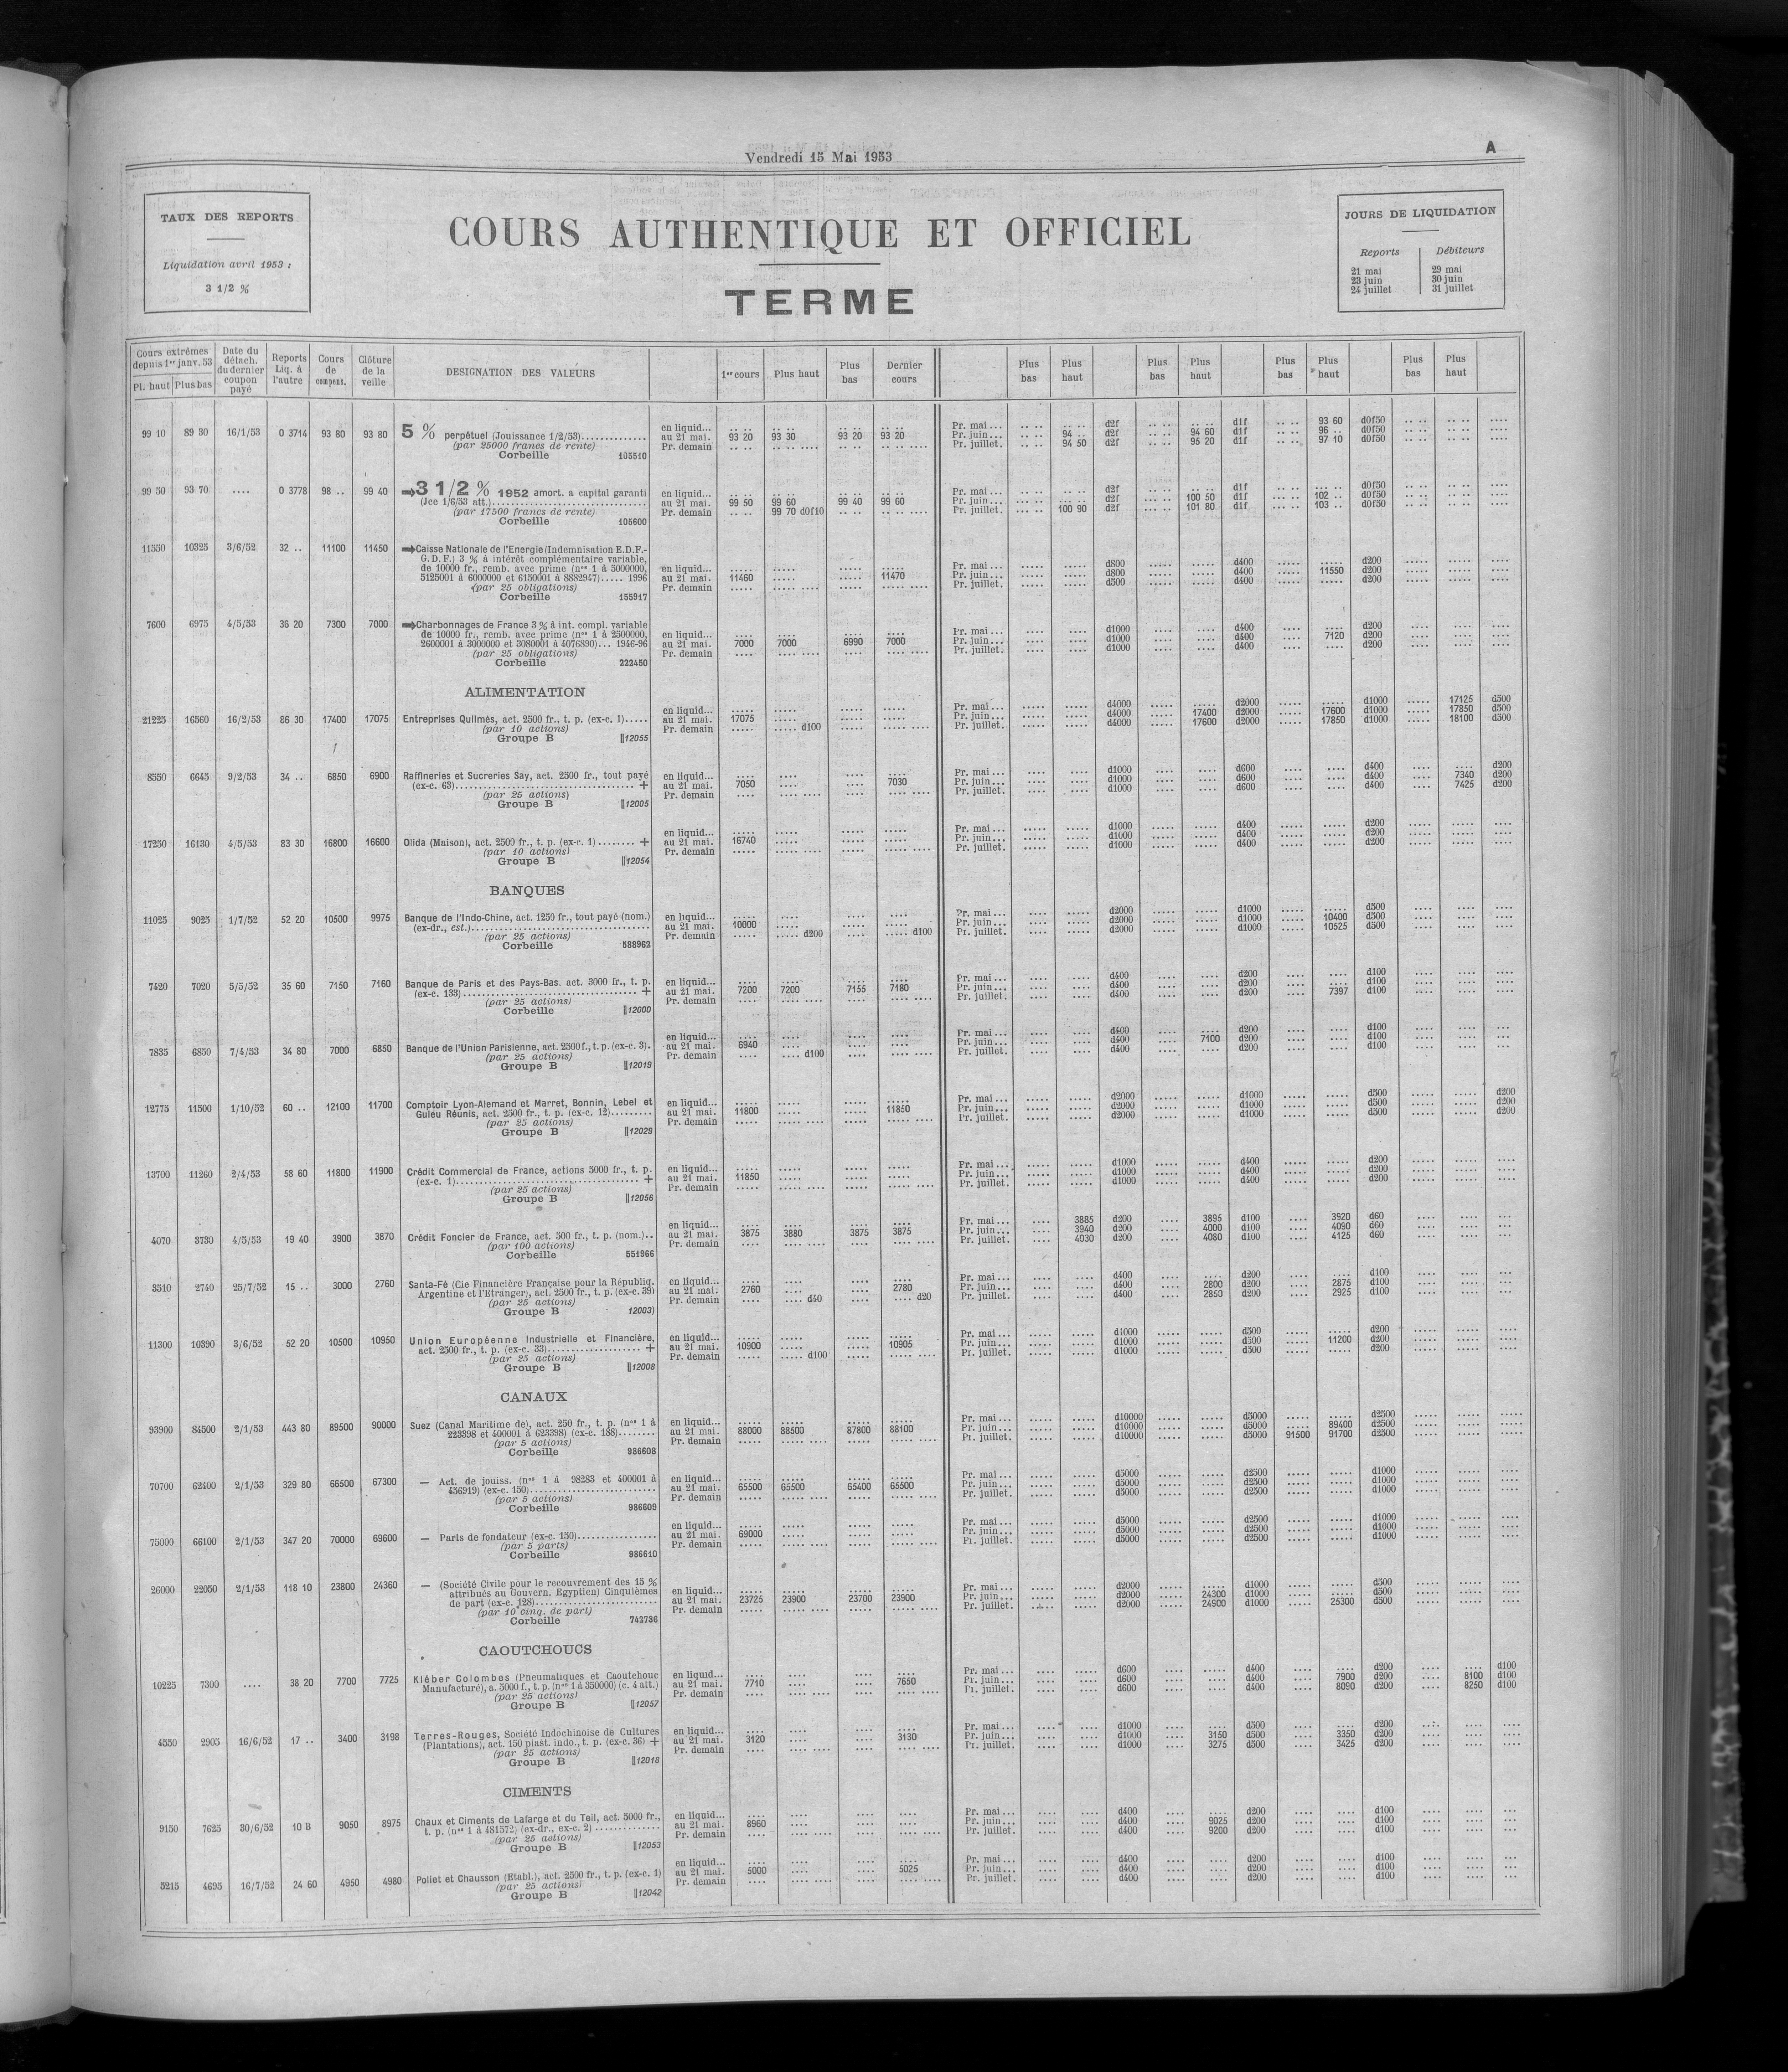 Vendredi 15 Mai 1953
A
TAUX DES REPORTS
Liquidation avril 1953 :
3 1/2 %
COURS AUTHENTIQUE ET OFFICIEL
TERME
JOURS DE LIQUIDATION
Reports Débiteurs
21 mai 29 mai
23 juin 30 juin
24 juillet 31 juillet
Cours extrêmes depuis 1er janv. 53 Pl. haut Plus bas
Date du détach. du dernier coupon payé
Reports Liq. à l'autre
Cours de compens.
Clôture de la veille
DESIGNATION DES VALEURS
1er cours Plus haut Plus bas Dernier cours
Plus bas Plus haut Plus bas Plus haut Plus bas Plus haut Plus bas Plus haut
99 10 89 30 16/1/53 0 3714 93 80 93 80 5 % perpétuel (Jouissance 1/2/53)
en liquid... Pr. mai ... d2f d1f 93 60 d0f50
au 21 mai. 93 20 93 30 93 20 93 20 Pr. juin... 94 .. d2f 94 60 d1f 96 .. d0f50
(par 25000 francs de rente) Pr. demain Pr. juillet. 94 50 d2f 95 20 d1f 97 10 d0f50
Corbeille 103510
99 50 93 70 .... 0 3778 98 .. 99 40 3 1/2 % 1952 amort. a capital garanti
en liquid... Pr. mai ... d2f d1f d0f50
(Jce 1/6/53 att.) au 21 mai. 99 50 99 60 99 40 99 60 Pr. juin... d2f 100 50 d1f 102 .. d0f50
(par 17500 francs de rente) Pr. demain 99 70 d0f10 Pr. juillet. 100 90 d2f 101 80 d1f 103 .. d0f50
Corbeille 105600
11550 10325 3/6/52 32 .. 11100 11450 Caisse Nationale de l'Energie (Indemnisation E.D.F.-
G.D.F.) 3 % à intérêt complémentaire variable,
de 10000 fr., remb. avec prime (nos 1 à 5000000, en liquid... Pr. mai ... d800 d400 d200
5125001 à 6000000 et 6150001 à 8882947)..... 1996 au 21 mai. 11460 11470 Pr. juin... d800 d400 11550 d200
(par 25 obligations) Pr. demain Pr. juillet. d500 d400 d200
Corbeille 155917
7600 6975 4/5/53 36 20 7300 7000 Charbonnages de France 3 % à int. compl. variable
de 10000 fr., remb. avec prime (nos 1 à 2500000, en liquid... Pr. mai ... d1000 d400 d200
2600001 à 3000000 et 3080001 à 4076890)... 1946-96 au 21 mai. 7000 7000 6990 7000 Pr. juin... d1000 d400 7120 d200
(par 25 obligations) Pr. demain Pr. juillet. d1000 d400 d200
Corbeille 222450
ALIMENTATION
en liquid... Pr. mai ... d4000 d2000 d1000 17125 d500
21225 16560 16/2/53 86 30 17400 17075 Entreprises Quilmès, act. 2500 fr., t. p. (ex-c. 1)..... au 21 mai. 17075 Pr. juin... d4000 17400 d2000 17600 d1000 17850 d500
(par 10 actions) Pr. demain d100 Pr. juillet. d4000 17600 d2000 17850 d1000 18100 d500
Groupe B 12055
8550 6645 9/2/53 34 .. 6850 6900 Raffineries et Sucreries Say, act. 2500 fr., tout payé en liquid... Pr. mai ... d1000 d600 d400 d200
(ex-c. 63) + au 21 mai. 7050 7030 Pr. juin... d1000 d600 d400 7340 d200
(par 25 actions) Pr. demain Pr. juillet. d1000 d600 d400 7425 d200
Groupe B 12005
en liquid... Pr. mai ... d1000 d400 d200
17250 16130 4/5/53 83 30 16800 16600 Olida (Maison), act. 2500 fr., t. p. (ex-c. 1)........ + au 21 mai. 16740 Pr. juin... d1000 d400 d200
(par 10 actions) Pr. demain Pr. juillet. d1000 d400 d200
Groupe B 12054
BANQUES
11025 9025 1/7/52 52 20 10500 9975 Banque de l'Indo-Chine, act. 1250 fr., tout payé (nom.) en liquid... Pr. mai ... d2000 d1000 d500
(ex-dr., est.) au 21 mai. 10000 Pr. juin... d2000 d1000 10400 d500
(par 25 actions) Pr. demain d200 d100 Pr. juillet. d2000 d1000 10525 d500
Corbeille 588962
7420 7020 5/5/52 35 60 7150 7160 Banque de Paris et des Pays-Bas. act. 3000 fr., t. p. en liquid... Pr. mai ... d400 d200 d100
(ex-c. 133) + au 21 mai. 7200 7200 7155 7180 Pr. juin... d400 d200 d100
(par 25 actions) Pr. demain Pr. juillet. d400 d200 7397 d100
Corbeille 12000
en liquid... Pr. mai ... d400 d200 d100
7835 6850 7/4/53 34 80 7000 6850 Banque de l'Union Parisienne, act. 2500 f., t. p. (ex-c. 3). au 21 mai. 6940 Pr. juin... d400 7100 d200 d100
(par 25 actions) Pr. demain d100 Pr. juillet. d400 d200 d100
Groupe B 12019
12775 11500 1/10/52 60 .. 12100 11700 Comptoir Lyon-Alemand et Marret, Bonnin, Lebel et en liquid... Pr. mai ... d2000 d1000 d500 d200
Guieu Réunis, act. 2500 fr., t. p. (ex-c. 12)......... au 21 mai. 11800 11850 Pr. juin... d2000 d1000 d500 d200
(par 25 actions) Pr. demain Pr. juillet. d2000 d1000 d500 d200
Groupe B 12029
13700 11260 2/4/53 58 60 11800 11900 Crédit Commercial de France, actions 5000 fr., t. p. en liquid... Pr. mai ... d1000 d400 d200
(ex-c. 1) + au 21 mai. 11850 Pr. juin... d1000 d400 d200
(par 25 actions) Pr. demain Pr. juillet. d1000 d400 d200
Groupe B 12056
en liquid... Pr. mai ... 3885 d200 3895 d100 3920 d60
4070 3730 4/5/53 19 40 3900 3870 Crédit Foncier de France, act. 500 fr., t. p. (nom.).. au 21 mai. 3875 3880 3875 3875 Pr. juin... 3940 d200 4000 d100 4090 d60
(par 100 actions) Pr. demain Pr. juillet. 4030 d200 4080 d100 4125 d60
Corbeille 551966
3510 2740 25/7/52 15 .. 3000 2760 Santa-Fé (Cie Financière Française pour la Républiq. en liquid... Pr. mai ... d400 d200 d100
Argentine et l'Etranger), act. 2500 fr., t. p. (ex-c. 39) au 21 mai. 2760 2780 Pr. juin... d400 2800 d200 2875 d100
(par 25 actions) Pr. demain d40 d20 Pr. juillet. d400 2850 d200 2925 d100
Groupe B 12003)
11300 10390 3/6/52 52 20 10500 10950 Union Européenne Industrielle et Financière, en liquid... Pr. mai ... d1000 d500 d200
act. 2500 fr., t. p. (ex-c. 33) + au 21 mai. 10900 10905 Pr. juin... d1000 d500 11200 d200
(par 25 actions) Pr. demain d100 Pr. juillet. d1000 d500 d200
Groupe B 12008
CANAUX
93900 84500 2/1/53 443 80 89500 90000 Suez (Canal Maritime de), act. 250 fr., t. p. (nos 1 à en liquid... Pr. mai ... d10000 d5000 d2500
223398 et 400001 à 623398) (ex-c. 188)........ au 21 mai. 88000 88500 87800 88100 Pr. juin... d10000 d5000 89400 d2500
(par 5 actions) Pr. demain Pr. juillet. d10000 d5000 91500 91700 d2500
Corbeille 986608
70700 62400 2/1/53 329 80 66500 67300 — Act. de jouiss. (nos 1 à 98283 et 400001 à en liquid... Pr. mai ... d5000 d2500 d1000
456919) (ex-c. 150) au 21 mai. 65500 65500 65400 65500 Pr. juin... d5000 d2500 d1000
(par 5 actions) Pr. demain Pr. juillet. d5000 d2500 d1000
Corbeille 986609
en liquid... Pr. mai ... d5000 d2500 d1000
75000 66100 2/1/53 347 20 70000 69600 — Parts de fondateur (ex-c. 150) au 21 mai. 69000 Pr. juin... d5000 d2500 d1000
(par 5 parts) Pr. demain Pr. juillet. d5000 d2500 d1000
Corbeille 986610
26000 22050 2/1/53 118 10 23800 24360 — (Société Civile pour le recouvrement des 15 %
attribués au Gouvern. Egyptien) Cinquièmes en liquid... Pr. mai ... d2000 d1000 d500
de part (ex-c. 128) au 21 mai. 23725 23900 23700 23900 Pr. juin... d2000 24300 d1000 d500
(par 10 cinq. de part) Pr. demain Pr. juillet. d2000 24900 d1000 25300 d500
Corbeille 742786
CAOUTCHOUCS
10225 7300 .... 38 20 7700 7725 Kléber Colombes (Pneumatiques et Caoutchouc en liquid... Pr. mai ... d600 d400 d200 d100
Manufacturé), a. 5000 f., t. p. (nos 1 à 350000) (c. 4 att.) au 21 mai. 7710 7650 Pr. juin... d600 d400 7900 d200 8100 d100
(par 25 actions) Pr. demain Pr. juillet. d600 d400 8090 d200 8250 d100
Groupe B 12057
4550 2905 16/6/52 17 .. 3400 3198 Terres-Rouges, Société Indochinoise de Cultures en liquid... Pr. mai ... d1000 d500 d200
(Plantations), act. 150 piast. indo., t. p. (ex-c. 36) + au 21 mai. 3120 3130 Pr. juin... d1000 3150 d500 3350 d200
(par 25 actions) Pr. demain Pr. juillet. d1000 3275 d500 3425 d200
Groupe B 12018
CIMENTS
9150 7625 30/6/52 10 8 9050 8975 Chaux et Ciments de Lafarge et du Teil, act. 5000 fr., en liquid... Pr. mai ... d400 d200 d100
t. p. (nos 1 à 481572) (ex-dr., ex-c. 2) au 21 mai. 8960 Pr. juin... d400 9025 d200 d100
(par 25 actions) Pr. demain Pr. juillet. d400 9200 d200 d100
Groupe B 12053
en liquid... Pr. mai ... d400 d200 d100
5215 4695 16/7/52 24 60 4950 4980 Poliet et Chausson (Etabl.), act. 2500 fr., t. p. (ex-c. 1) au 21 mai. 5000 5025 Pr. juin... d400 d200 d100
(par 25 actions) Pr. demain Pr. juillet. d400 d200 d100
Groupe B 12042